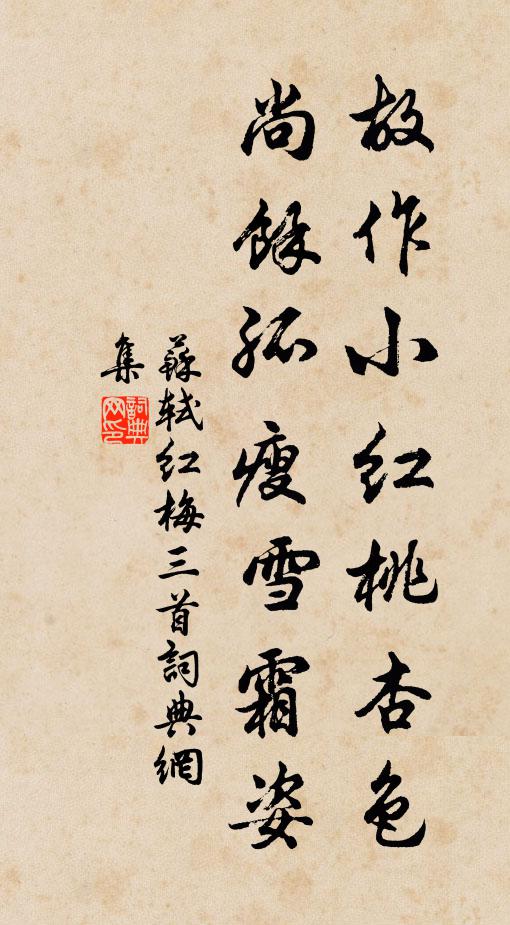 故作小红桃杏色
尚馀孤瘦雪霜姿
蘇軾红梅三首詞典網
集
詞典
网印